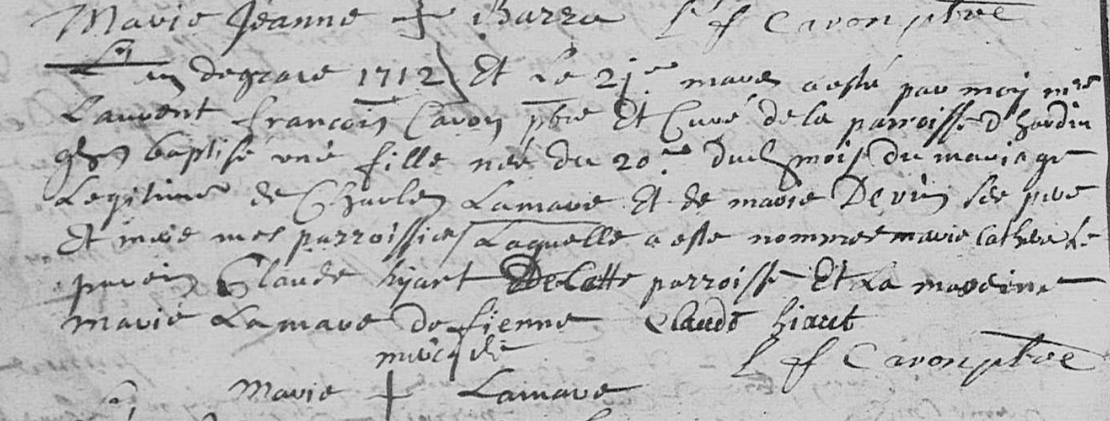 Marie Jeanne + Barra L f Caron ptre
Lan degrace 1712 Et Le 21e mars a esté par moy mre
Laurent francois Caron ptre Et Curé de la parroisse d'hardin
ghen baptisé une fille née du 20e dud mois du mariage
Legitime de Charles Lamare Et de marie Devin ses pere
Et mere mes parroissiens Laquelle a esté nommee marie Catherine Le
parein Claude hiart De Cette parroisse Et La mareine
marie Lamare de fienne Claude hiart
L f Caron ptre
Marie + Lamare